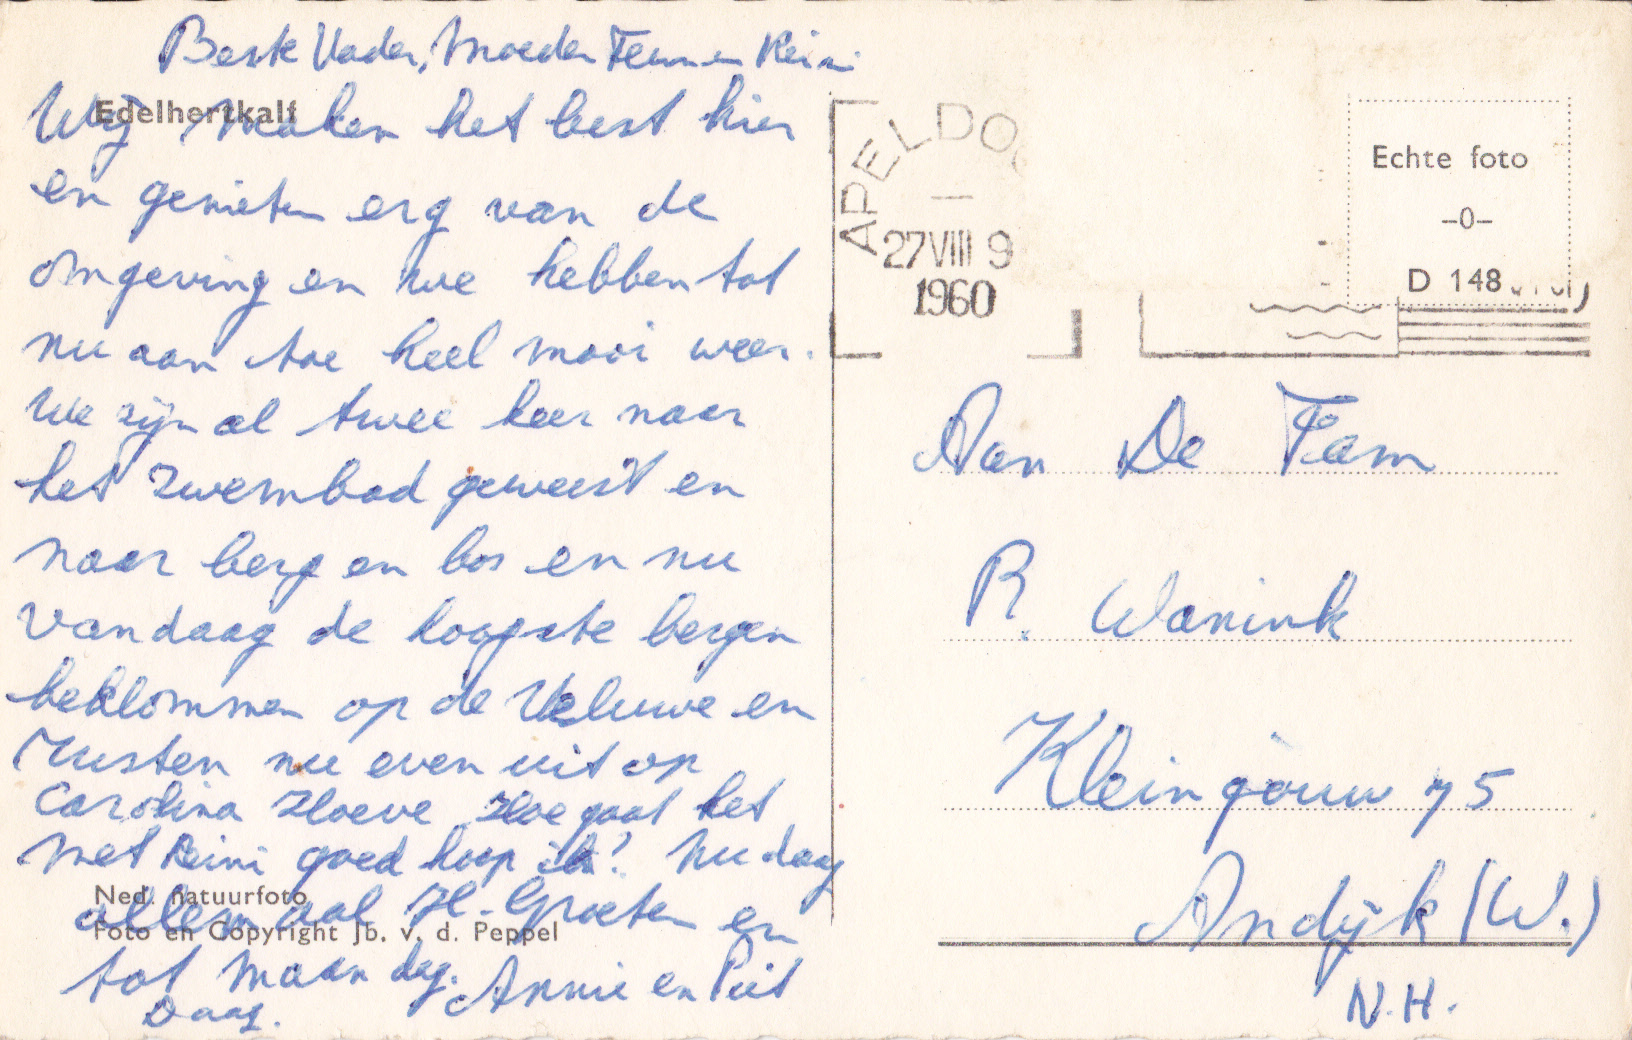 Beste Vader, Moeder Teun en Reini
Edelhertkalf
Wij maken het best hier
en genieten erg van de
omgeving en we hebben tot
nu aan toe heel mooi weer.
We zijn al twee keer naar
het zwembad geweest en
naar berg en bos en nu
vandaag de hoogste bergen
beklommen op de Veluwe en
rusten nu even uit op
Carolina Hoeve Hoe gaat het
met Reini goed hoop ik? Nu dag
Ned. natuurfoto
allemaal H. Groeten en
Foto en Copyright Jb. v. d. Peppel
tot maandag. Annie en Piet
Daag.
APELDO
27 VIII 9
1960
Echte foto
-0-
D 148
Aan De Fam
R. Wanink
Kleingouw 75
Andijk (W.)
N.H.